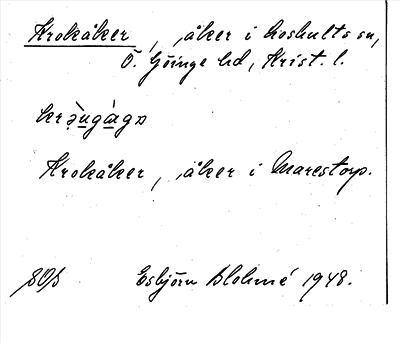 Krokåker, åker i Loshults sn,
Ö. Göinge hd, Krist. l.
Krokåker, åker i Marestorp.
Esbjörn Blohmé 1948.